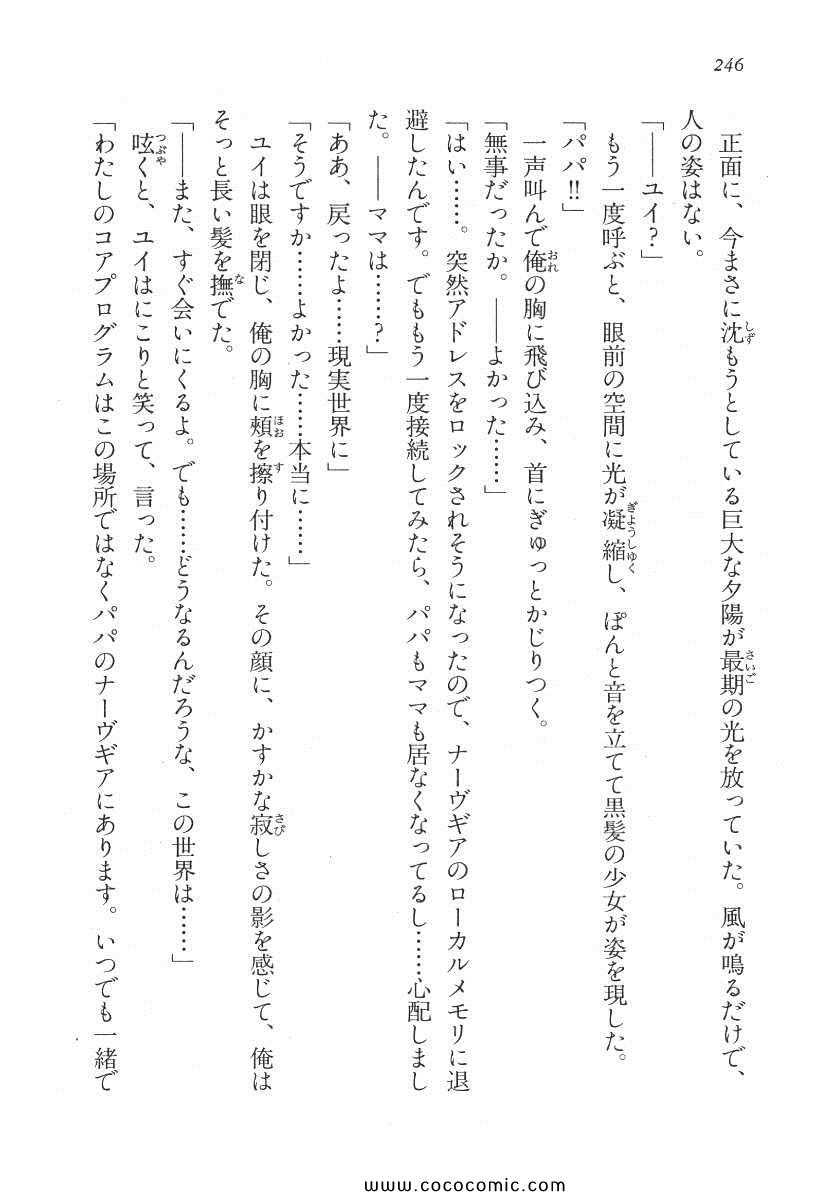 246
正面に、今まさに沈もうとしている巨大な夕陽が最期の光を放っていた。風が鳴るだけで、
人の姿はない。
「――ユイ?」
もう一度呼ぶと、眼前の空間に光が凝縮し、ぽんと音を立てて黒髪の少女が姿を現した。
「パパ!!」
一声叫んで俺の胸に飛び込み、首にぎゅっとかじりつく。
「無事だったか。――よかった……」
「はい……。突然アドレスをロックされそうになったので、ナーヴギアのローカルメモリに退
避したんです。でももう一度接続してみたら、パパもママも居なくなってるし……心配しまし
た。――ママは……?」
「ああ、戻ったよ……現実世界に」
「そうですか……よかった……本当に……」
ユイは眼を閉じ、俺の胸に頬を擦り付けた。その顔に、かすかな寂しさの影を感じて、俺は
そっと長い髪を撫でた。
「――また、すぐ会いにくるよ。でも……どうなるんだろうな、この世界は……」
呟くと、ユイはにこりと笑って、言った。
「わたしのコアプログラムはこの場所ではなくパパのナーヴギアにあります。いつでも一緒で
www.cococomic.com